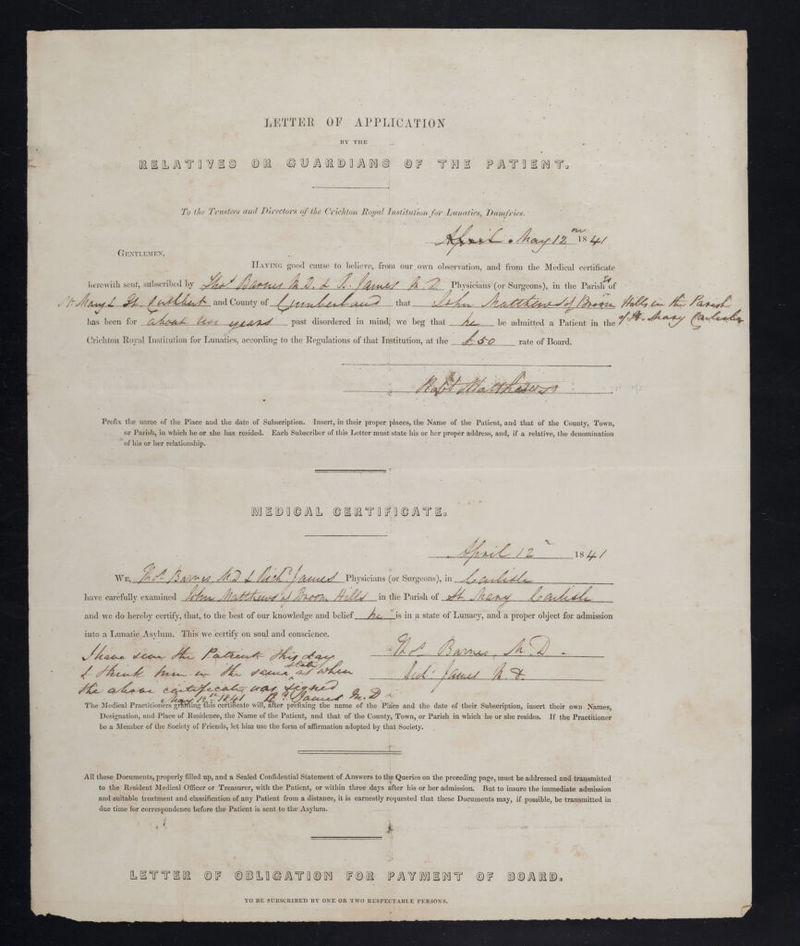 LETTER OF APPLICATION
BY THE
RELATIVES OR GUARDIANS OF THE PATIENT.
To the Trustees and Directors of the Crichton Royal Institution for Lunatics, Dumfries.
April May 12 1841
GENTLEMEN,
HAVING good cause to believe, from our own observation, and from the Medical certificate
herewith sent, subscribed by Thos Barnes M.D. & R. James M.D. Physicians (or Surgeons), in the Parish of
St Mary & St. Cuthbert and County of Cumberland that John Matthews of Moor Hills in the Parish
of St. Mary Carlisle
has been for about two years past disordered in mind, we beg that he be admitted a Patient in the
Crichton Royal Institution for Lunatics, according to the Regulations of that Institution, at the £50 rate of Board.
Robt Matthews
Prefix the name of the Place and the date of Subscription. Insert, in their proper places, the Name of the Patient, and that of the County, Town,
or Parish, in which he or she has resided. Each Subscriber of this Letter must state his or her proper address, and, if a relative, the denomination
of his or her relationship.
MEDICAL CERTIFICATE.
April 12 1841
WE, Thos. Barnes, M.D & Richd James Physicians (or Surgeons), in Carlisle
have carefully examined John Matthews of Moor Hills in the Parish of St. Mary Carlisle
and we do hereby certify, that, to the best of our knowledge and belief he is in a state of Lunacy, and a proper object for admission
into a Lunatic Asylum. This we certify on soul and conscience.
Thos. Barnes, M.D.
Richd. James M.D.
I have seen the Patient this day
& think him in the same state as when
the above certificate was signed
May 12th 1841 Rd James M.D
The Medical Practitioners granting this certificate will, after prefixing the name of the Place and the date of their Subscription, insert their own Names,
Designation, and Place of Residence, the Name of the Patient, and that of the County, Town, or Parish in which he or she resides. If the Practitioner
be a Member of the Society of Friends, let him use the form of affirmation adopted by that Society.
All these Documents, properly filled up, and a Sealed Confidential Statement of Answers to the Queries on the preceding page, must be addressed and transmitted
to the Resident Medical Officer or Treasurer, with the Patient, or within three days after his or her admission. But to insure the immediate admission
and suitable treatment and classification of any Patient from a distance, it is earnestly requested that these Documents may, if possible, be transmitted in
due time for correspondence before the Patient is sent to the Asylum.
LETTER OF OBLIGATION FOR PAYMENT OF BOARD.
TO BE SUBSCRIBED BY ONE OR TWO RESPECTABLE PERSONS.